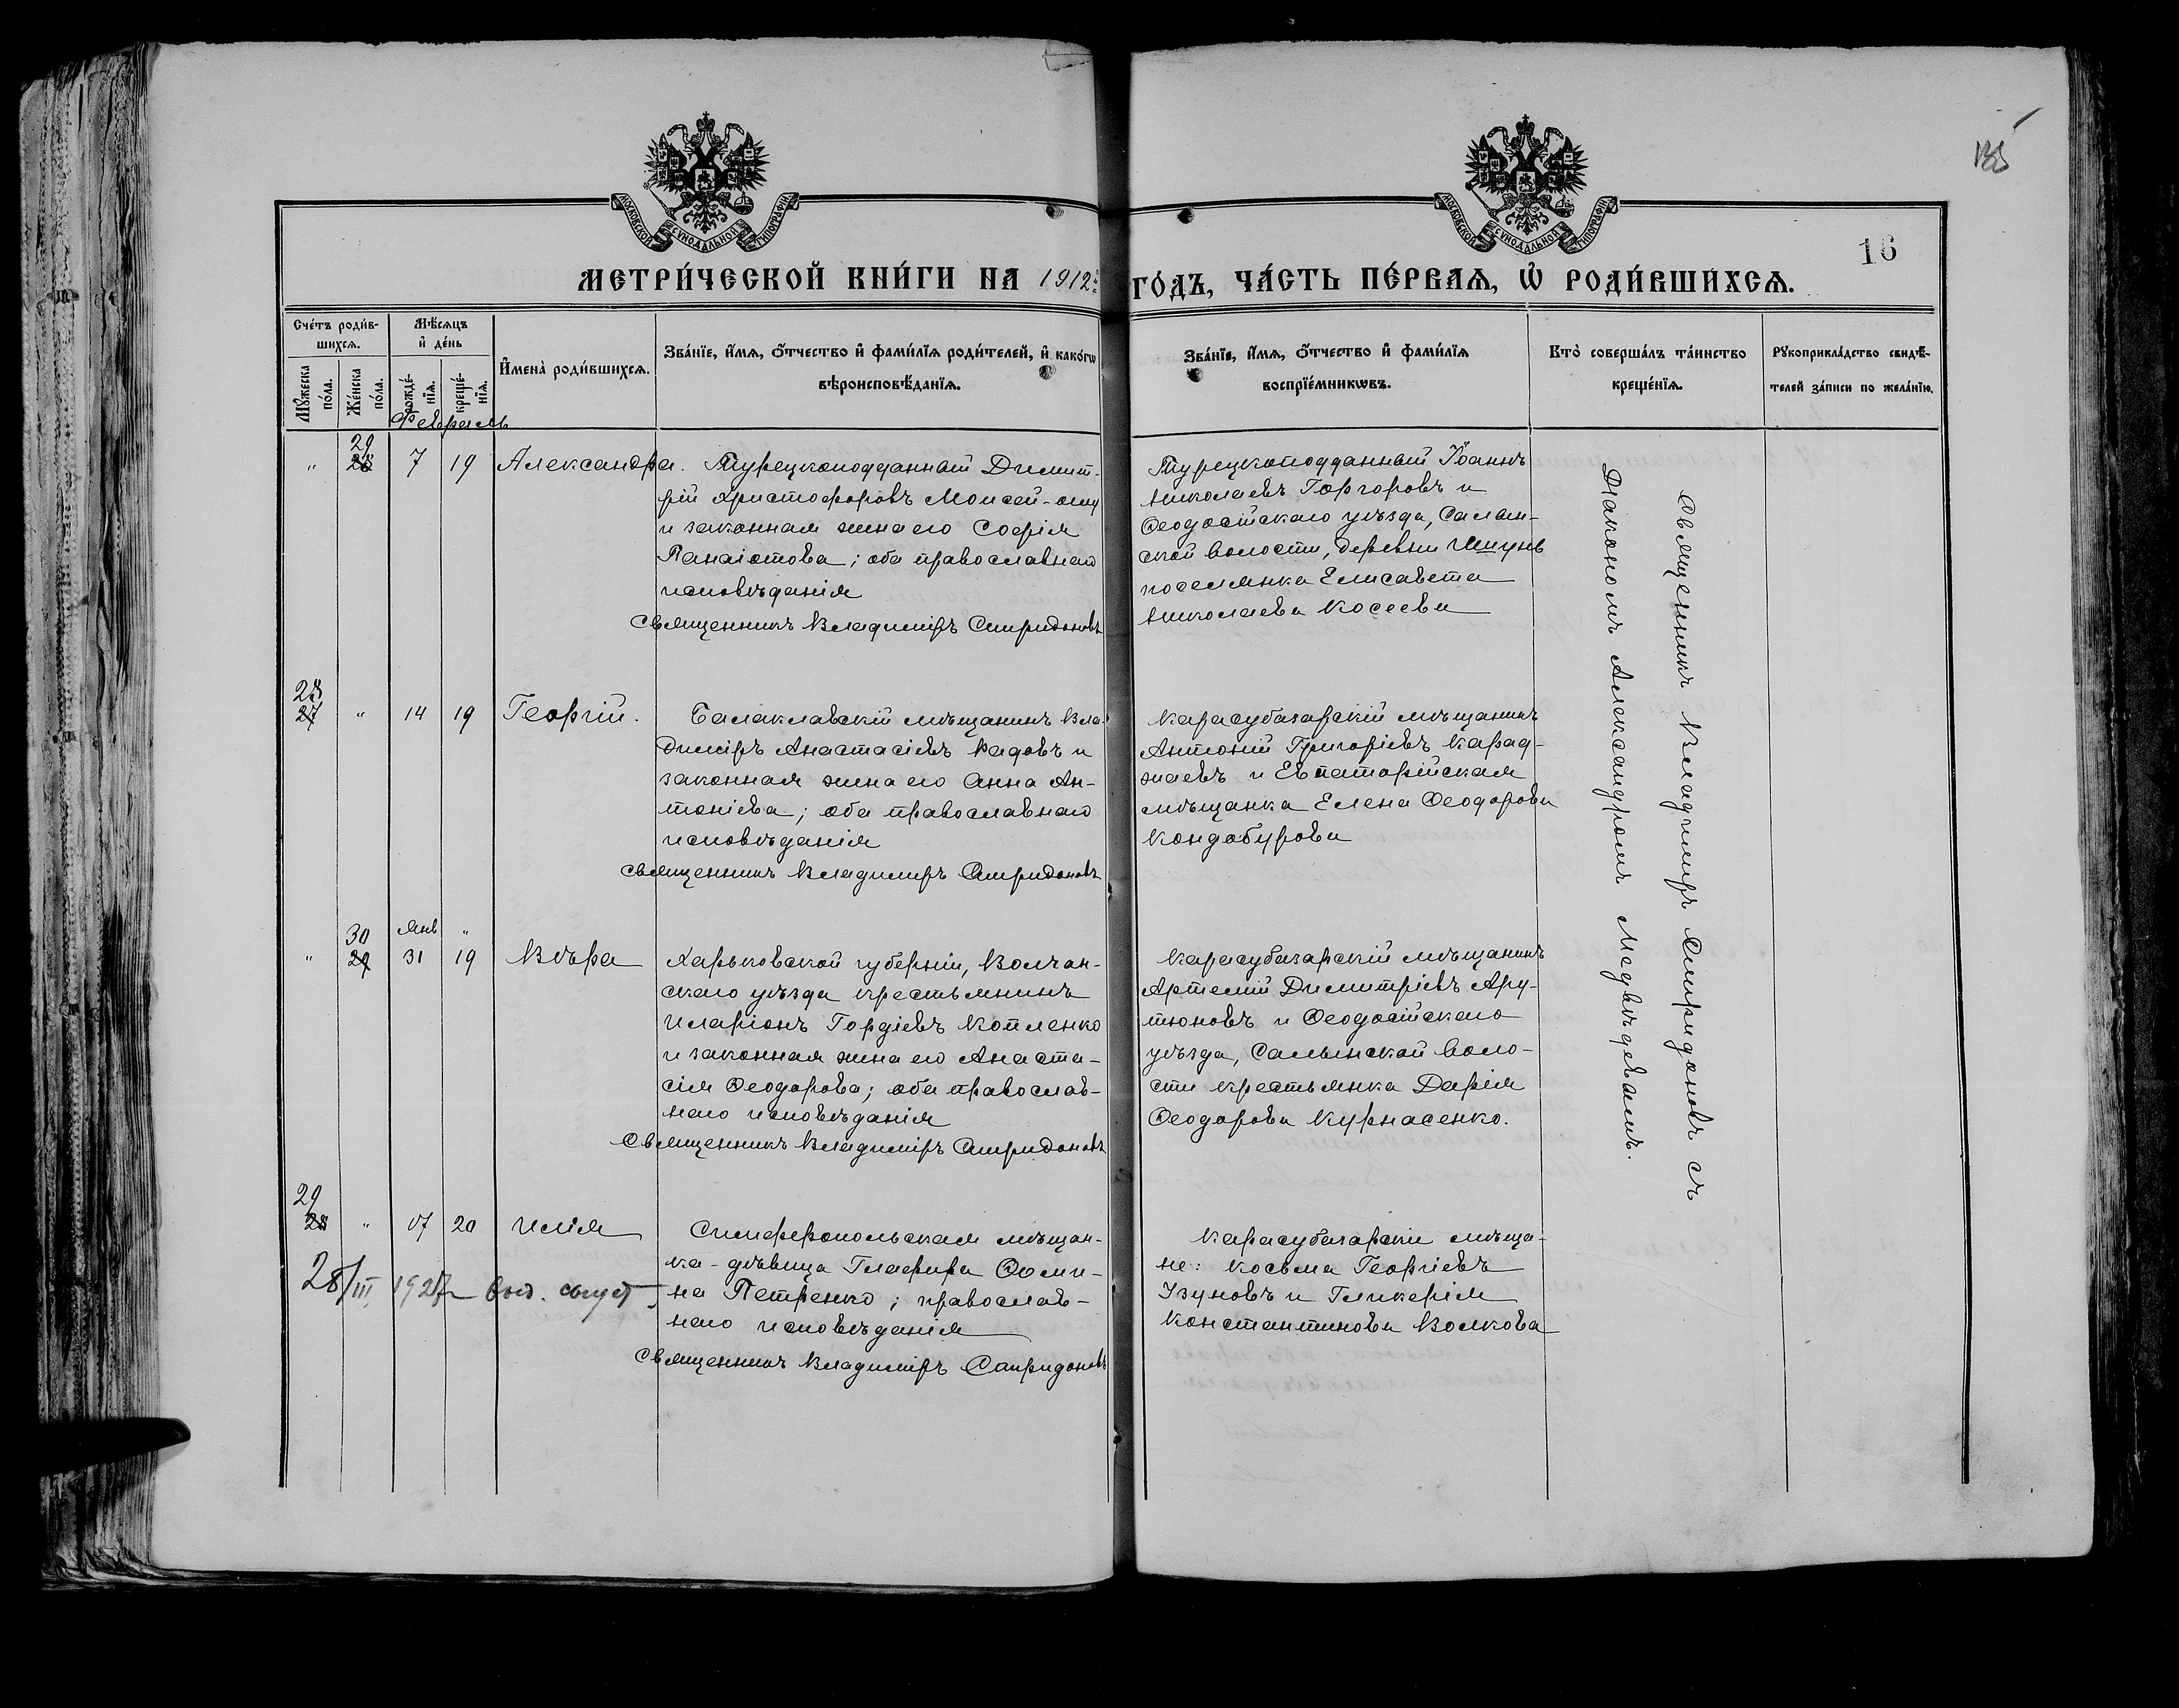 135
МОСКОВСКОЙ СУНОДАЛЬНОЙ ТИПОГРАФІИ
МОСКОВСКОЙ СУНОДАЛЬНОЙ ТИПОГРАФІИ
16
МЕТРИ́ЧЕСКОЙ КНИ́ГИ НА 1912й ГО́ДЪ, ЧА́СТЬ ПЕ́РВАѦ, Ѡ҆ РОДИ́ВШИХСѦ.
Сче́тъ роди́в-
шихсѧ.
Мꙋ́жеска по́ла.
Же́нска по́ла.
Мѣ́сѧцъ и҆ де́нь
рожде́-нїѧ.
креще́-нїѧ.
И҆мена̀ роди́вшихсѧ.
Зва́нїе, и҆́мѧ, ѻ҆́тчество и҆ фами́лїѧ роди́телей, и҆ како́гѡ
вѣроисповѣ́данїѧ.
Зва́нїе, и҆́мѧ, ѻ҆́тчество и҆ фами́лїѧ
воспрїе́мникѡвъ.
Кто̀ соверша́лъ та́инство
креще́нїѧ.
Рꙋкоприкла́дство свидѣ́-
телей за́писи по жела́нїю.
Февраль
29
" 28 7 19 Александра.
Турецкоподданный Димит-
рій Христофоровъ Моисей-оглу
и законная жена его Софія
Панаіотова; оба православнаго
исповѣданія
Священникъ Владиміръ Спиридоновъ
Турецкоподданный Іоаннъ
Николаевъ Горгоровъ и
Ѳеодосійскаго уѣзда, Салын-
ской волости, деревни
поселянка Елисавета
Николаева Косеева
28
27 " 14 19 Георгій.
Балаклавскій мѣщанинъ Вла-
диміръ Анастасіевъ Радовъ и
законная жена его Анна Ан-
тоніева; оба православнаго
исповѣданія
Священникъ Владиміръ Спиридоновъ
Карасубазарскій мѣщанинъ
Антоній Григоріевъ Карад-
жаевъ и Евпаторійская
мѣщанка Елена Ѳеодорова
Кондабурова
30 Янв "
" 29 31 19 Вѣра
Харьковской губерніи, Волчан-
скаго уѣзда крестьянинъ
Иларіонъ Гордіевъ Копленко
и законная жена его Анаста-
сія Ѳеодорова; оба православ-
наго исповѣданія
Священникъ Владиміръ Спиридоновъ
Карасубазарскій мѣщанинъ
Артемій Димитріевъ Ару-
тюновъ и Ѳеодосійскаго
уѣзда, Салынской воло-
сти крестьянка Дарія
Ѳеодорова Курнасенко.
29
28 " 17 20 Илія
28/III 1927 выд.
Симферопольская мѣщан-
ка-дѣвица Глафира Ѳоми-
на Петренко; православ-
наго исповѣданія
Священникъ Владиміръ Спиридоновъ
Карасубазарскіе мѣща-
не: Косьма Георгіевъ
Узуновъ и Гликерія
Константинова Волкова
Священникъ Владиміръ Спиридоновъ съ
Діакономъ Александромъ Медвѣдевымъ.